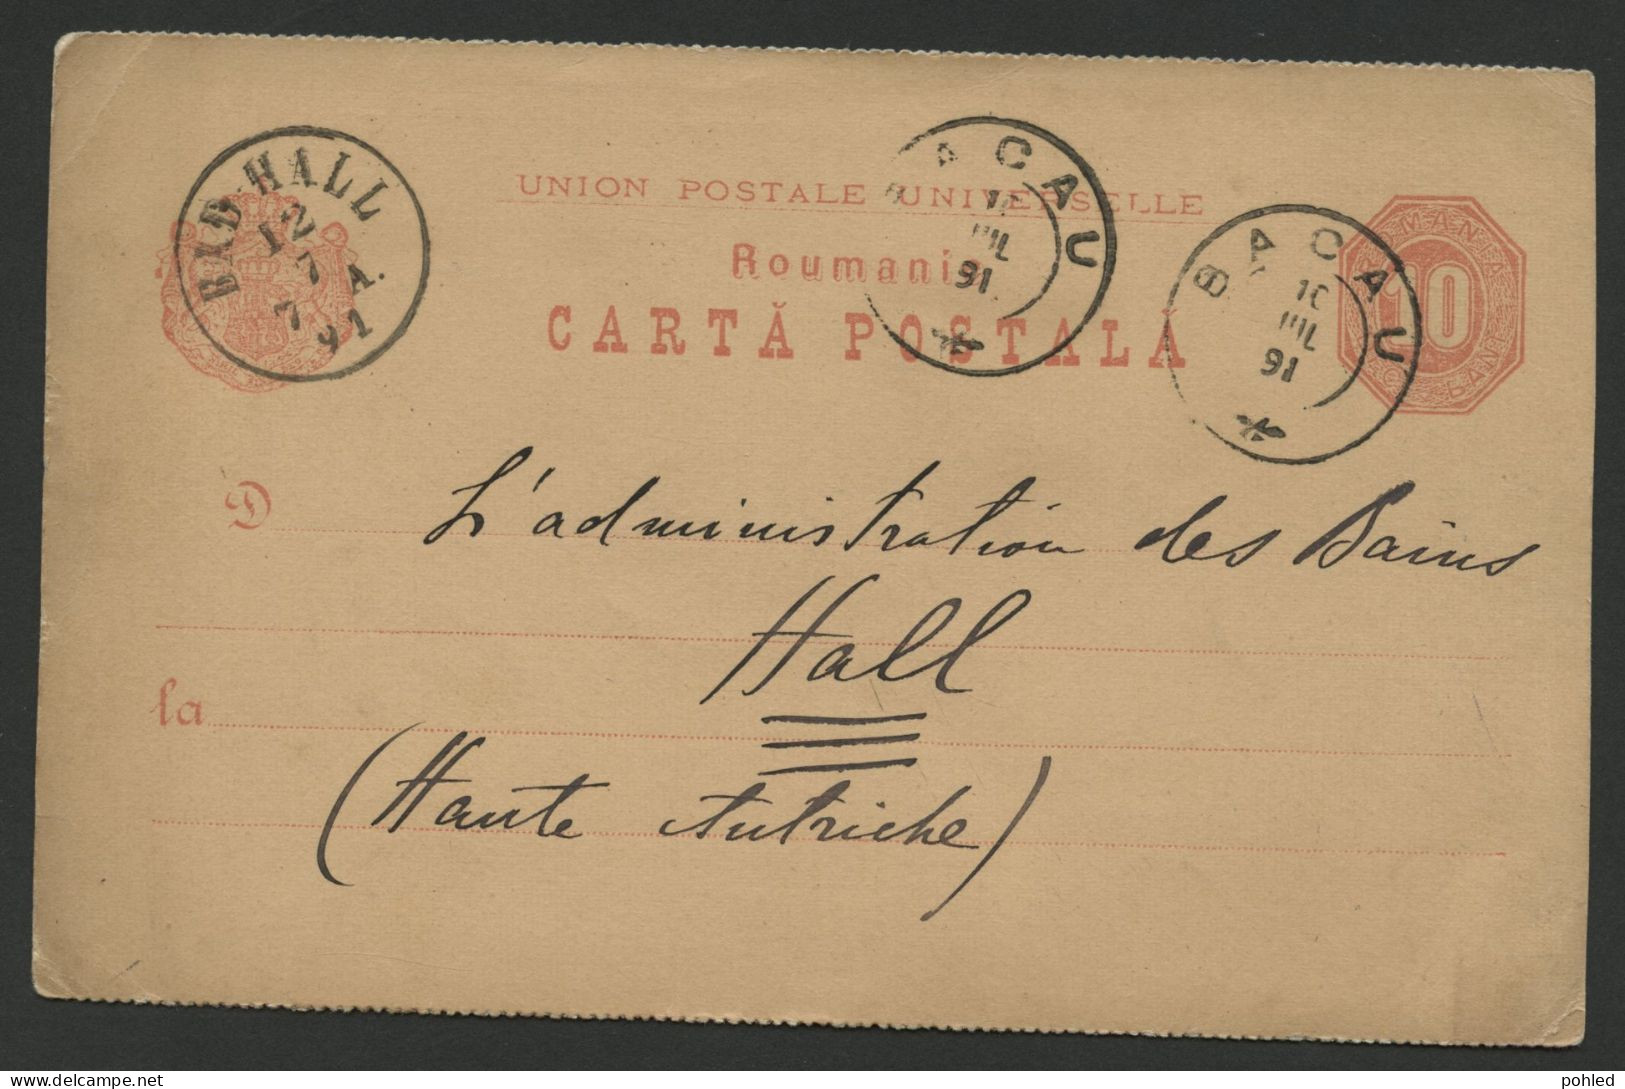 UNION POSTALE UNIVERSELLE
Roumanie
CARTĂ POSTALĂ
BAD-HALL
12
7
7 A.
91
BACAU
10
IUL
91
BACAU
10
IUL
91
10
D
L'administration des Bains
Hall
la
(Haute Autriche)
pohled